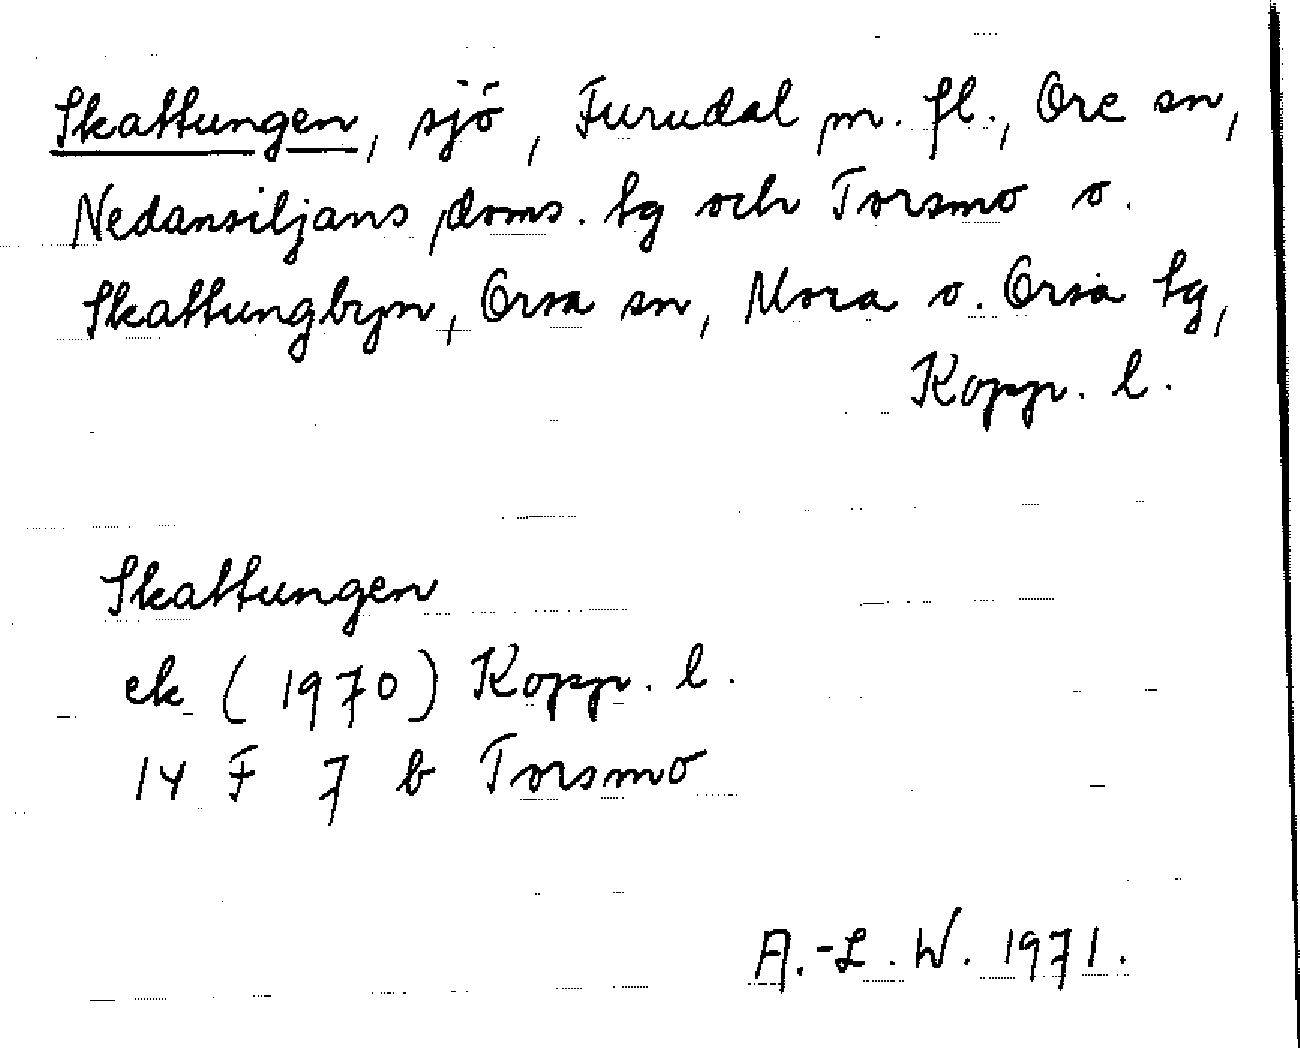 Skattungen, sjö, Furudal m. fl., Ore sn,
Nedansiljans doms. tg och Torsmo o.
Skattungbyn, Orsa sn, Mora o. Orsa tg,
Kopp. l.
Skattungen
ek (1970) Kopp. l.
14 F 7 b Torsmo
A.-L. W. 1971.